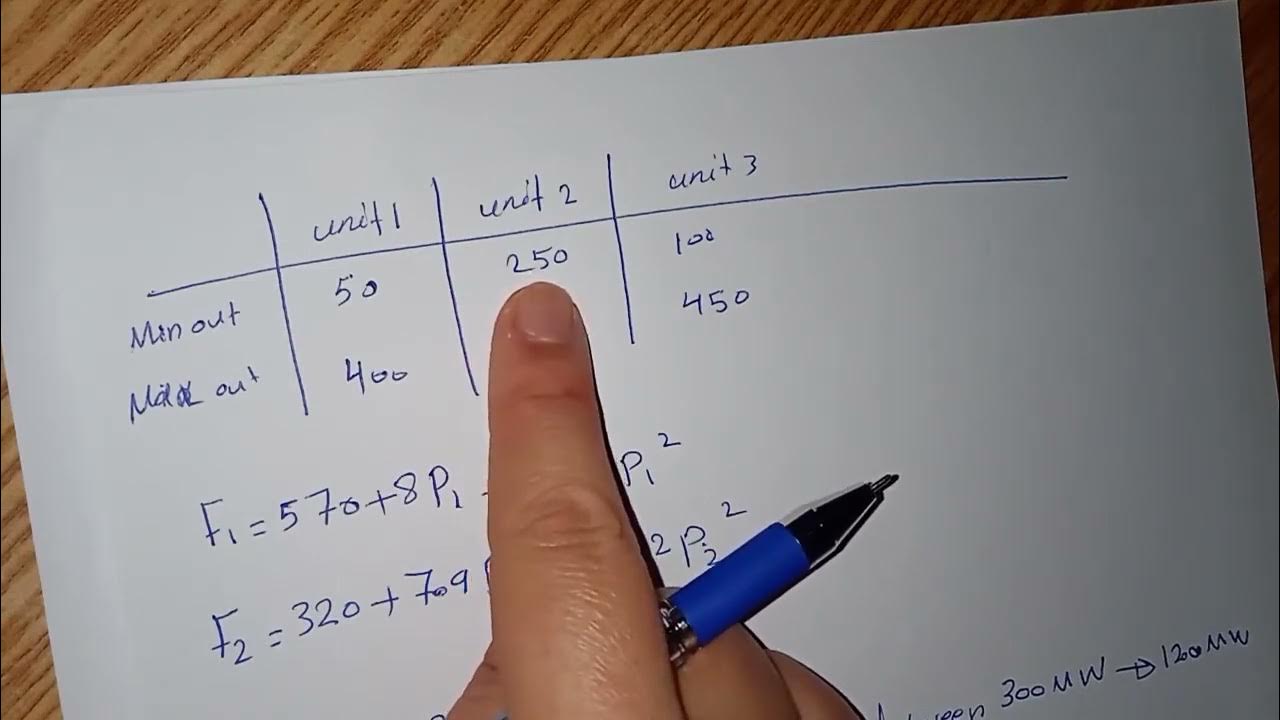 unit 1 unit 2 unit 3
Min out 50 250 100
Max out 400 450
F₁ = 570 + 8P₁ P₁²
F₂ = 320 + 7.9 2P₂²
300MW → 1200MW